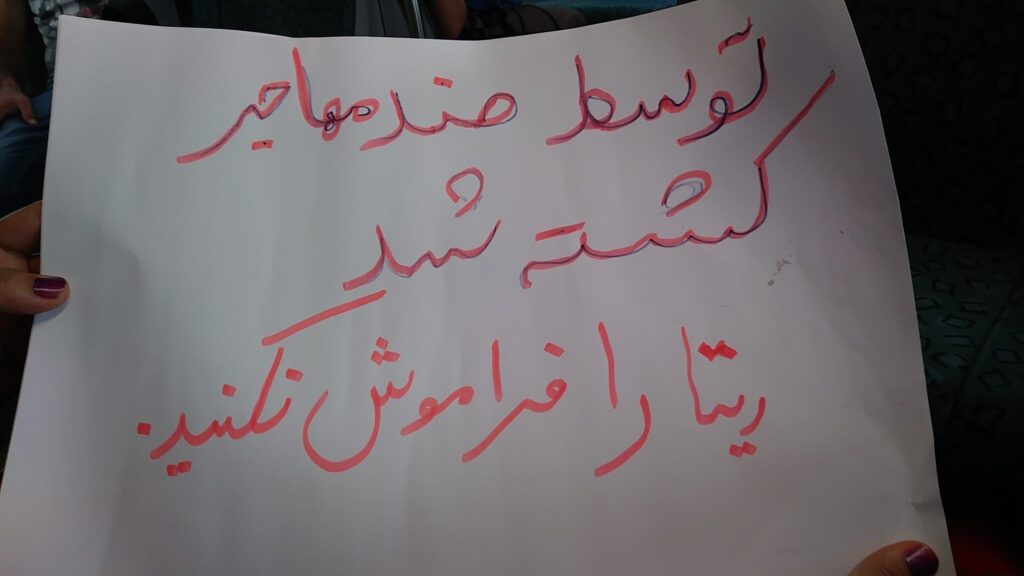 توسط ضد مهاجر
کشته شد
ریتا را فراموش نکنید.